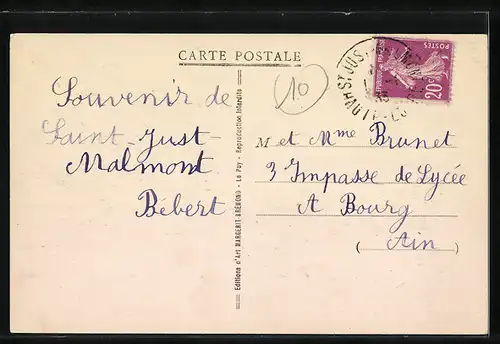 CARTE POSTALE
10
Souvenir de
Saint-Just-
Malmont
Bébert
Editions d'Art MARGERIT-BRÉMOND - Le Puy - Reproduction interdite
POSTES
20c
M et Mme Brunet
3 Impasse de Lycée
A Bourg
(Ain)